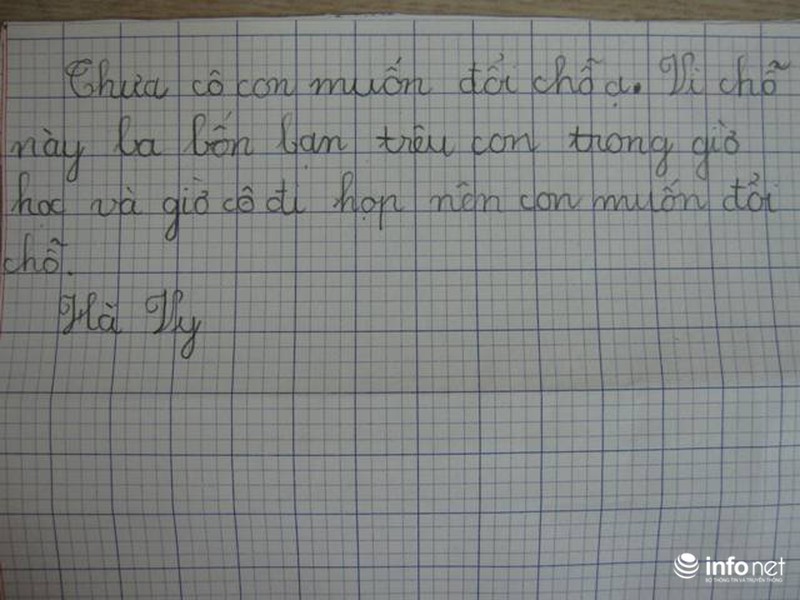 Thưa cô con muốn đổi chỗ ạ. Vì chỗ
này ba bốn bạn trêu con trong giờ
học và giờ cô đi họp nên con muốn đổi
chỗ.
Hà Vy
infonet
BỘ THÔNG TIN VÀ TRUYỀN THÔNG